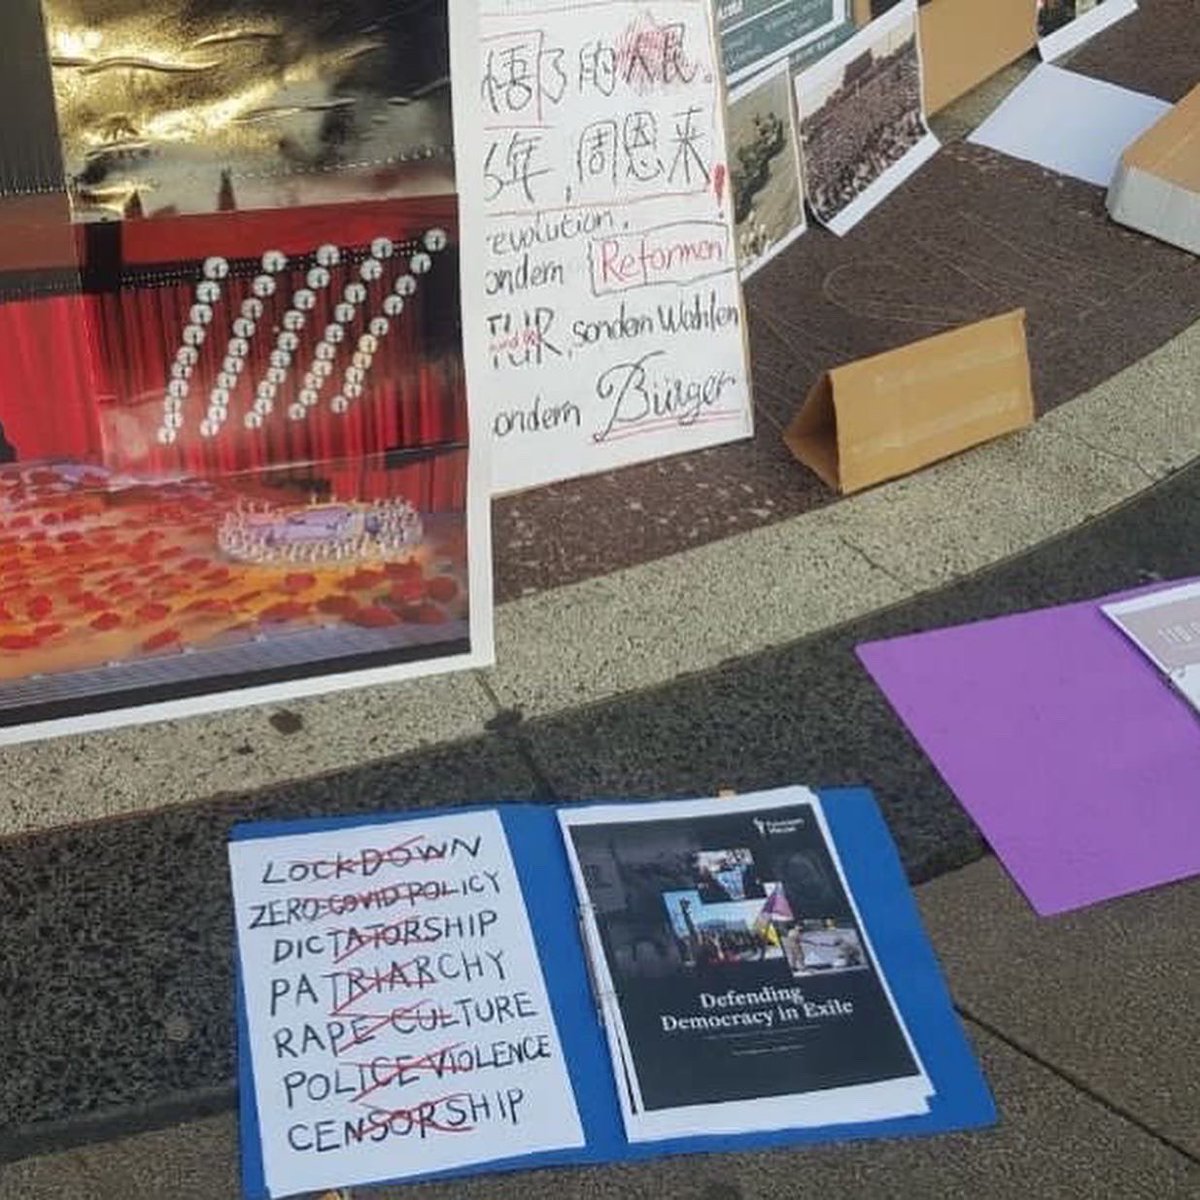 悟了的人民。
年,周恩来!
evolution,
ondern Reformen
sondern Wahlen
ondern Bürger
LOCKDOWN
ZERO-COVID POLICY
DICTATORSHIP
PATRIARCHY
RAPE CULTURE
POLICE VIOLENCE
CENSORSHIP
Freedom House
Defending
Democracy in Exile